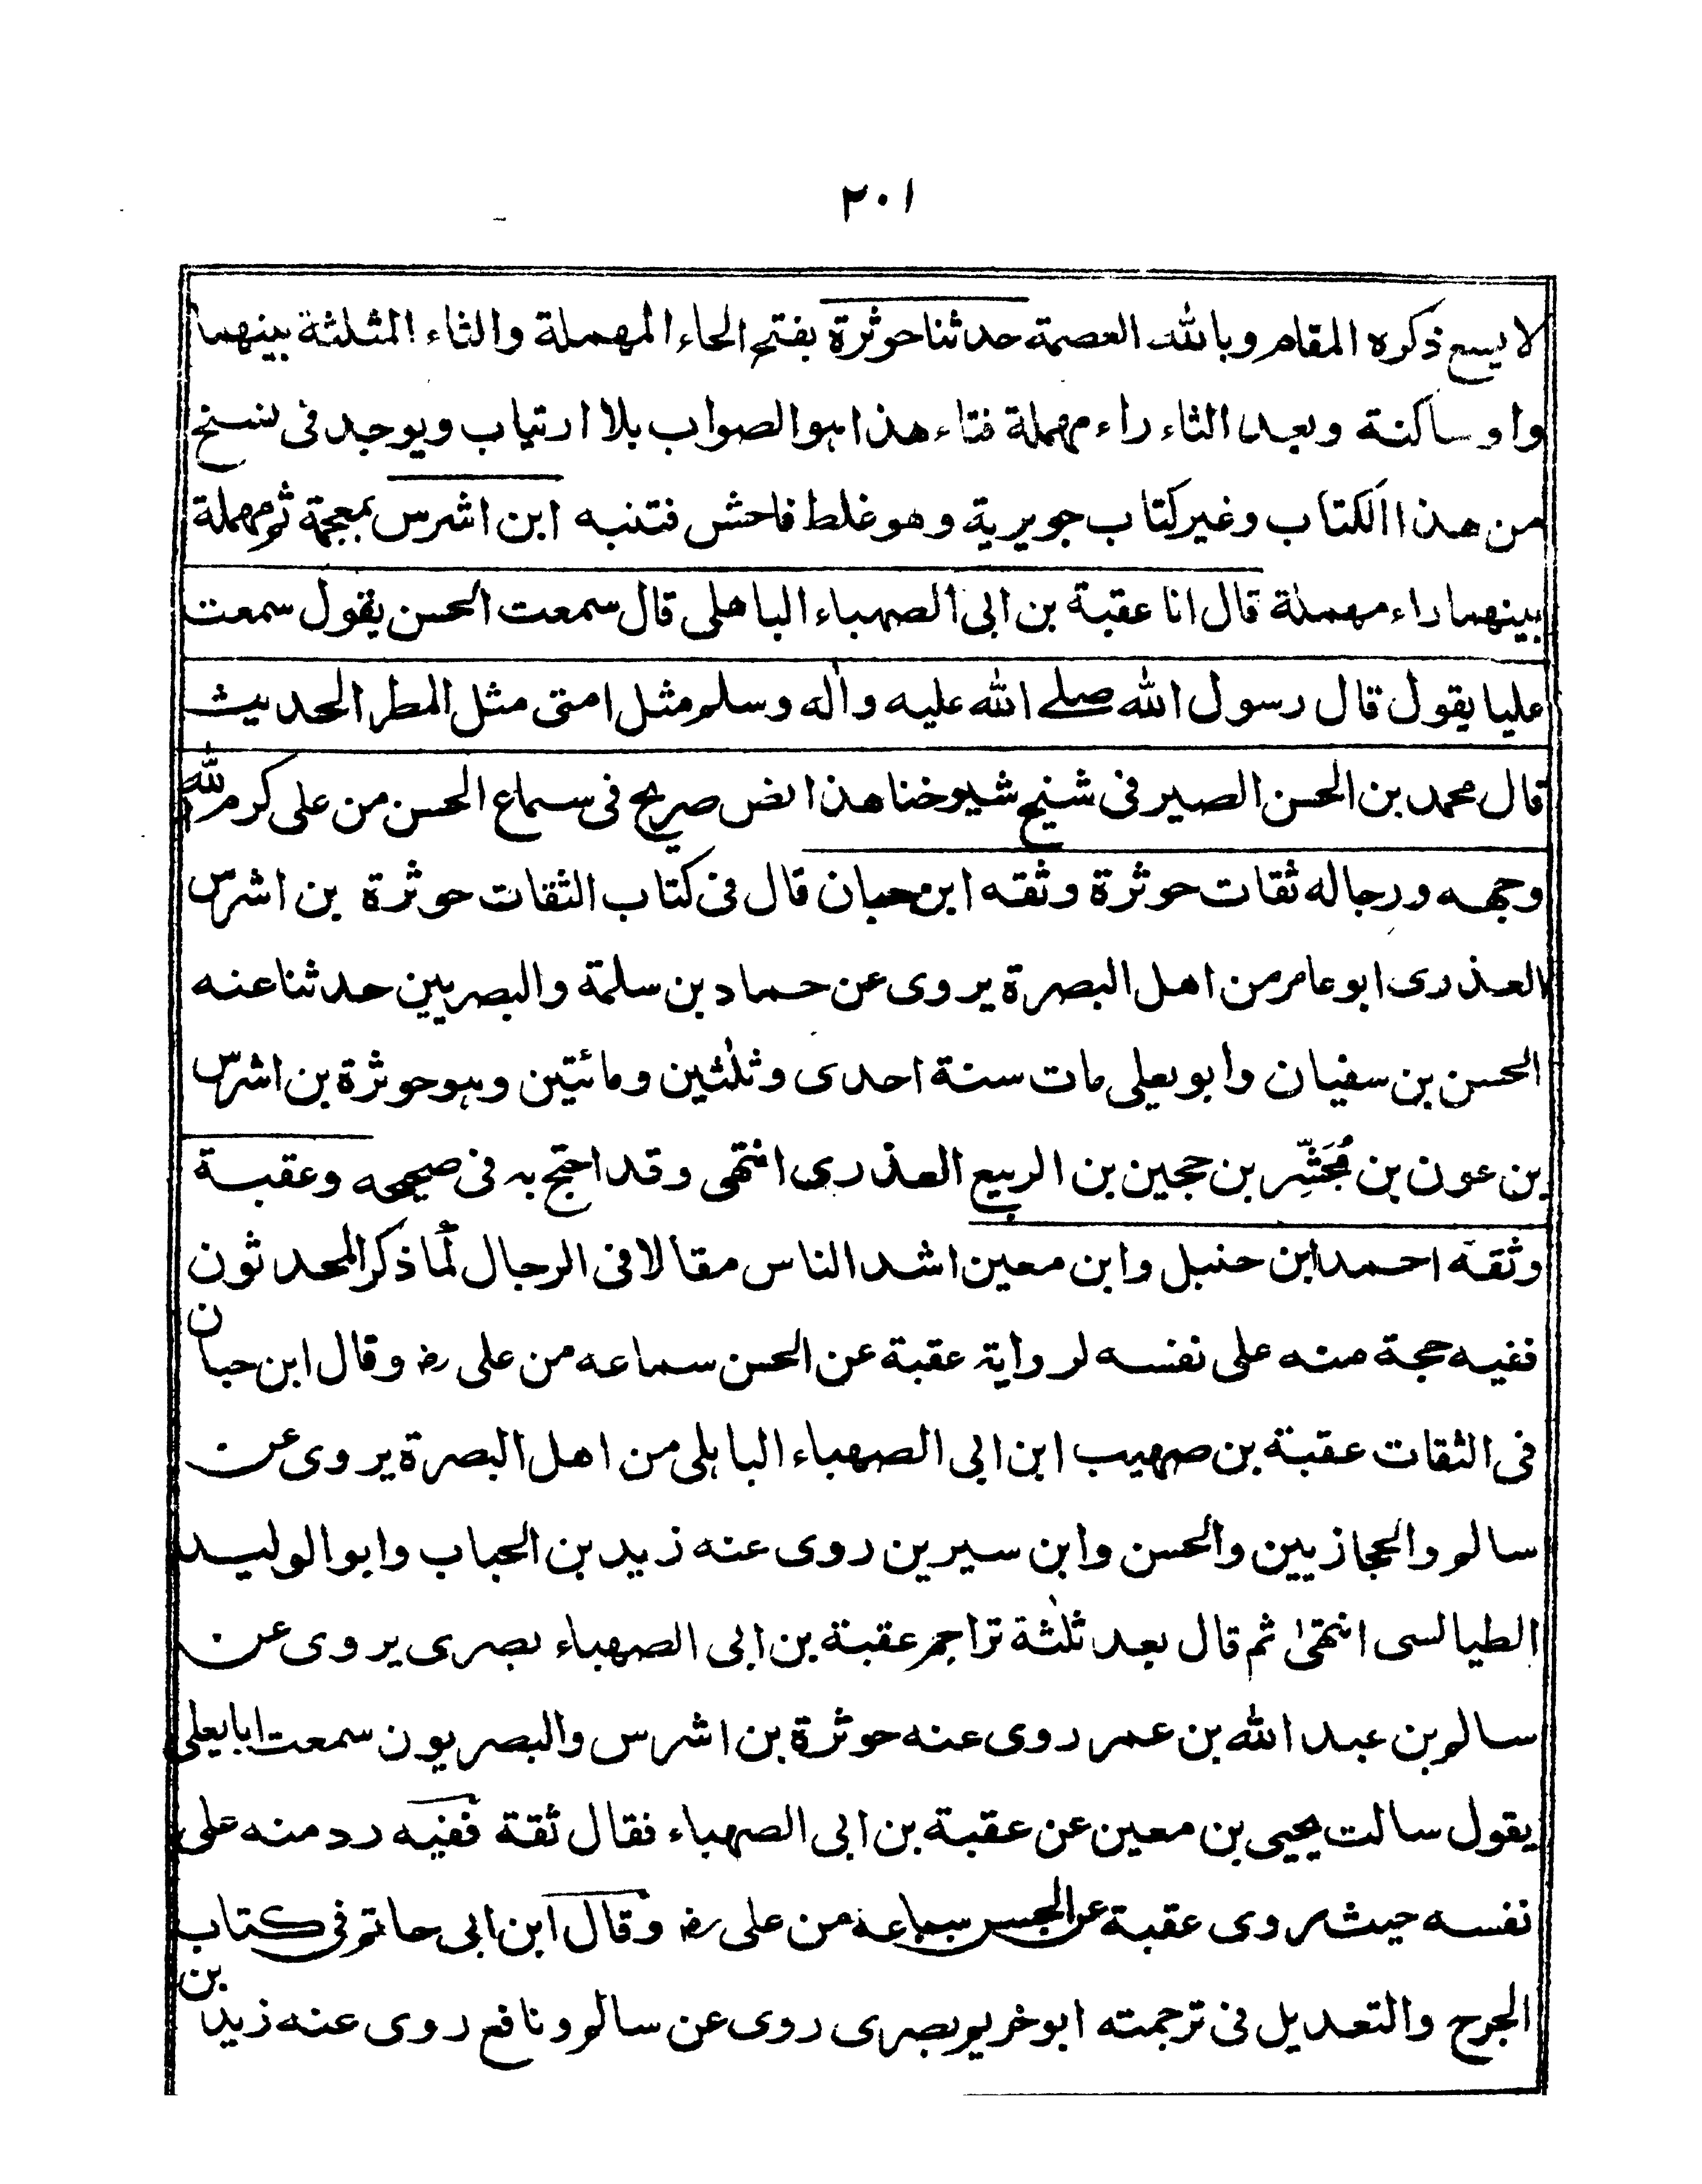 ٢٠١
لا يسع ذكره المقام وبالله العصمة حدثنا حوثرة بفتح الحاء المهملة والثاء المثلثة بينهما
واو ساكنة وبعد الثاء راء مهملة فتاء هذا هو الصواب بلا ارتياب ويوجد فى نسخ
من هذا الكتاب وغير كتاب جويرية وهو غلط فاحش فتنبه ابن اشرس بمعجمة ثم مهملة
بينهما راء مهملة قال انا عقبة بن ابى الصهباء الباهلى قال سمعت الحسن يقول سمعت
عليا يقول قال رسول الله صلے الله عليه واٰله وسلم مثل امتى مثل المطر الحديث
قال محمد بن الحسن الصيرفى شيخ شيوخنا هذا نص صريح فى سماع الحسن من على كرم الله
وجهه ورجاله ثقات حوثرة وثقه ابن حبان قال فى كتاب الثقات حوثرة بن اشرس
العذرى ابو عامر من اهل البصرة يروى عن حماد بن سلمة والبصريين حدثنا عنه
الحسن بن سفيان وابو يعلى مات سنة احدى وثلٰثين ومائتين وهو حوثرة بن اشرس
بن عون بن مُجَشِّر بن حجين بن الربيع العذرى انتهى وقد احتج به فى صحيحه وعقبة
وثقه احمد ابن حنبل وابن معين اشد الناس مقالا فى الرجال لَما ذكر المحدثون
ففيه حجة منه على نفسه لرواية عقبة عن الحسن سماعه من على رضـ وقال ابن حبان
فى الثقات عقبة بن صهيب ابن ابى الصهباء الباهلى من اهل البصرة يروى عن
سالم والحجازيين والحسن وابن سيرين روى عنه زيد بن الحباب وابو الوليد
الطيالسى انتهىٰ ثم قال بعد ثلٰثة تراجم عقبة بن ابى الصهباء بصرى يروى عن
سالم بن عبد الله بن عمر روى عنه حوثرة بن اشرس والبصريون سمعت ابا يعلى
يقول سالت يحيى بن معين عن عقبة بن ابى الصهباء فقال ثقة ففيه رد منه على
نفسه حيث روى عقبة عن الحسن سماعه من على رضـ وقال ابن ابى حاتم فى كتاب
الجرح والتعديل فى ترجمته ابو خريم بصرى روى عن سالم ونافع روى عنه زيد بن